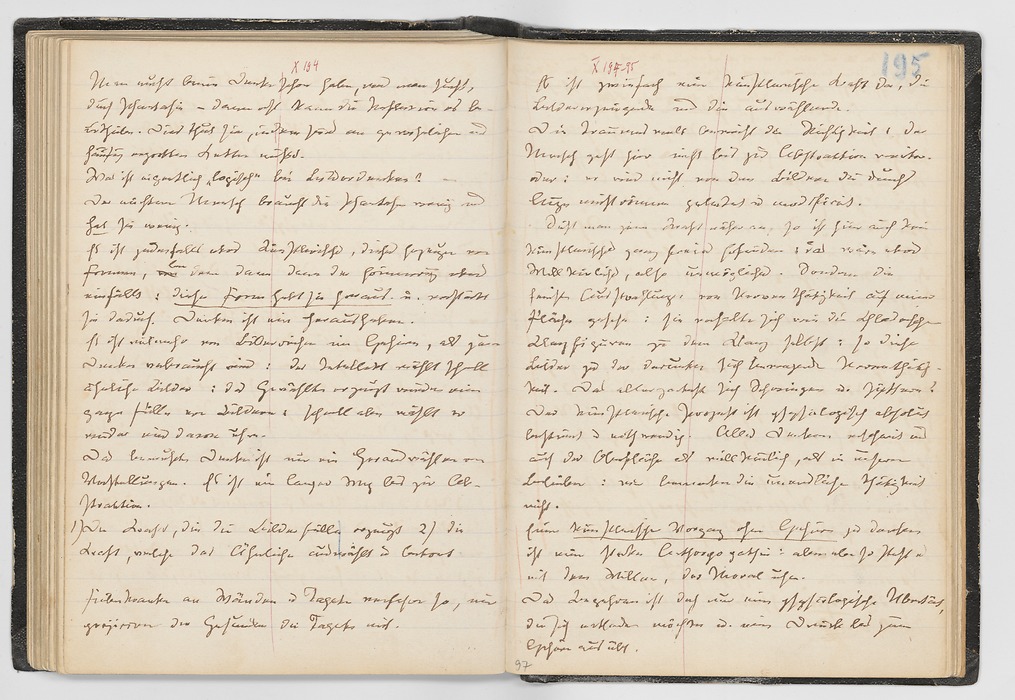 X 194
Man muß beim Denken schon haben, was man sucht,
durch Phantasie – dann erst kann die Reflexion es be-
urtheilen. Dies thut sie, indem sie es an gewöhnlichen und
häufig erprobten Ketten mißt.
Was ist eigentlich „logisch" beim Bilderdenken? –
Der nüchterne Mensch braucht die Phantasie wenig und
hat sie wenig.
Es ist jedenfalls etwas Künstlerisches, dieses Erzeugen von
Formen, bei denen dann der Erinnerung etwas
einfällt: diese Form hebt sie heraus u. verstärkt
sie dadurch. Denken ist ein Herausheben.
Es ist viel mehr von Bilderreihen im Gehirn, als zum
Denken verbraucht wird: der Intellekt wählt schnell
ähnliche Bilder: das Gewählte erzeugt wieder eine
ganze Fülle von Bildern: schnell aber wählt er
wieder eins davon usw.
Das bewußte Denken ist nur ein Herauswählen von
Vorstellungen. Es ist ein langer Weg bis zur Ab-
straktion.
1) Die Kraft, die die Bilderfülle erzeugt 2) die
Kraft, welche das Ähnliche auswählt u betont
Fieberkranke an Wänden u Tapeten verfahren so, nur
projiciren die Gesunden die Tapete mit.
X 194-95
195
Es ist zweifach eine künstlerische Kraft da, die
bildererzeugende und die auswählende.
Die Traumwelt beweist die Richtigkeit: der
Mensch geht hier nicht bis zur Abstraktion weiter.
oder: er wird nicht von den Bildern die durchs
Auge einströmen geleitet u modificirt.
Sieht man jene Kraft näher an, so ist hier auch kein
künstlerisches ganz freies Erfinden: das wäre etwas
Willkürliches, also Unmögliches. Sondern die
feinsten Ausstrahlungen von Nerventhätigkeit auf einer
Fläche gesehn: sie verhalten sich wie die Chladnischen
Klangfiguren zu dem Klang selbst: so diese
Bilder zu der darunter sich bewegenden Nerventhätig-
keit. Das allerzarteste sich Schwingen u. Zittern!
Der künstlerische Prozeß ist physiologisch absolut
bestimmt u nothwendig. Alles Denken erscheint uns
auf der Oberfläche als willkürlich, als in unserem
Belieben: wir bemerken die unendliche Thätigkeit
nicht.
Einen künstlerischen Vorgang ohne Gehirn zu denken
ist eine starke Anthropopathie: aber ebenso steht es
mit dem Willen, der Moral usw.
Das Begehren ist doch nur eine physiologische
die sich entladen möchte u. einen Druck bis zum
Gehirn ausübt.
97